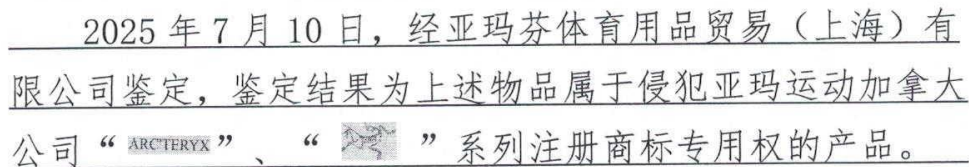 2025 年 7 月 10 日，经亚玛芬体育用品贸易（上海）有
限公司鉴定，鉴定结果为上述物品属于侵犯亚玛运动加拿大
公司“ARC'TERYX”、“ ”系列注册商标专用权的产品。